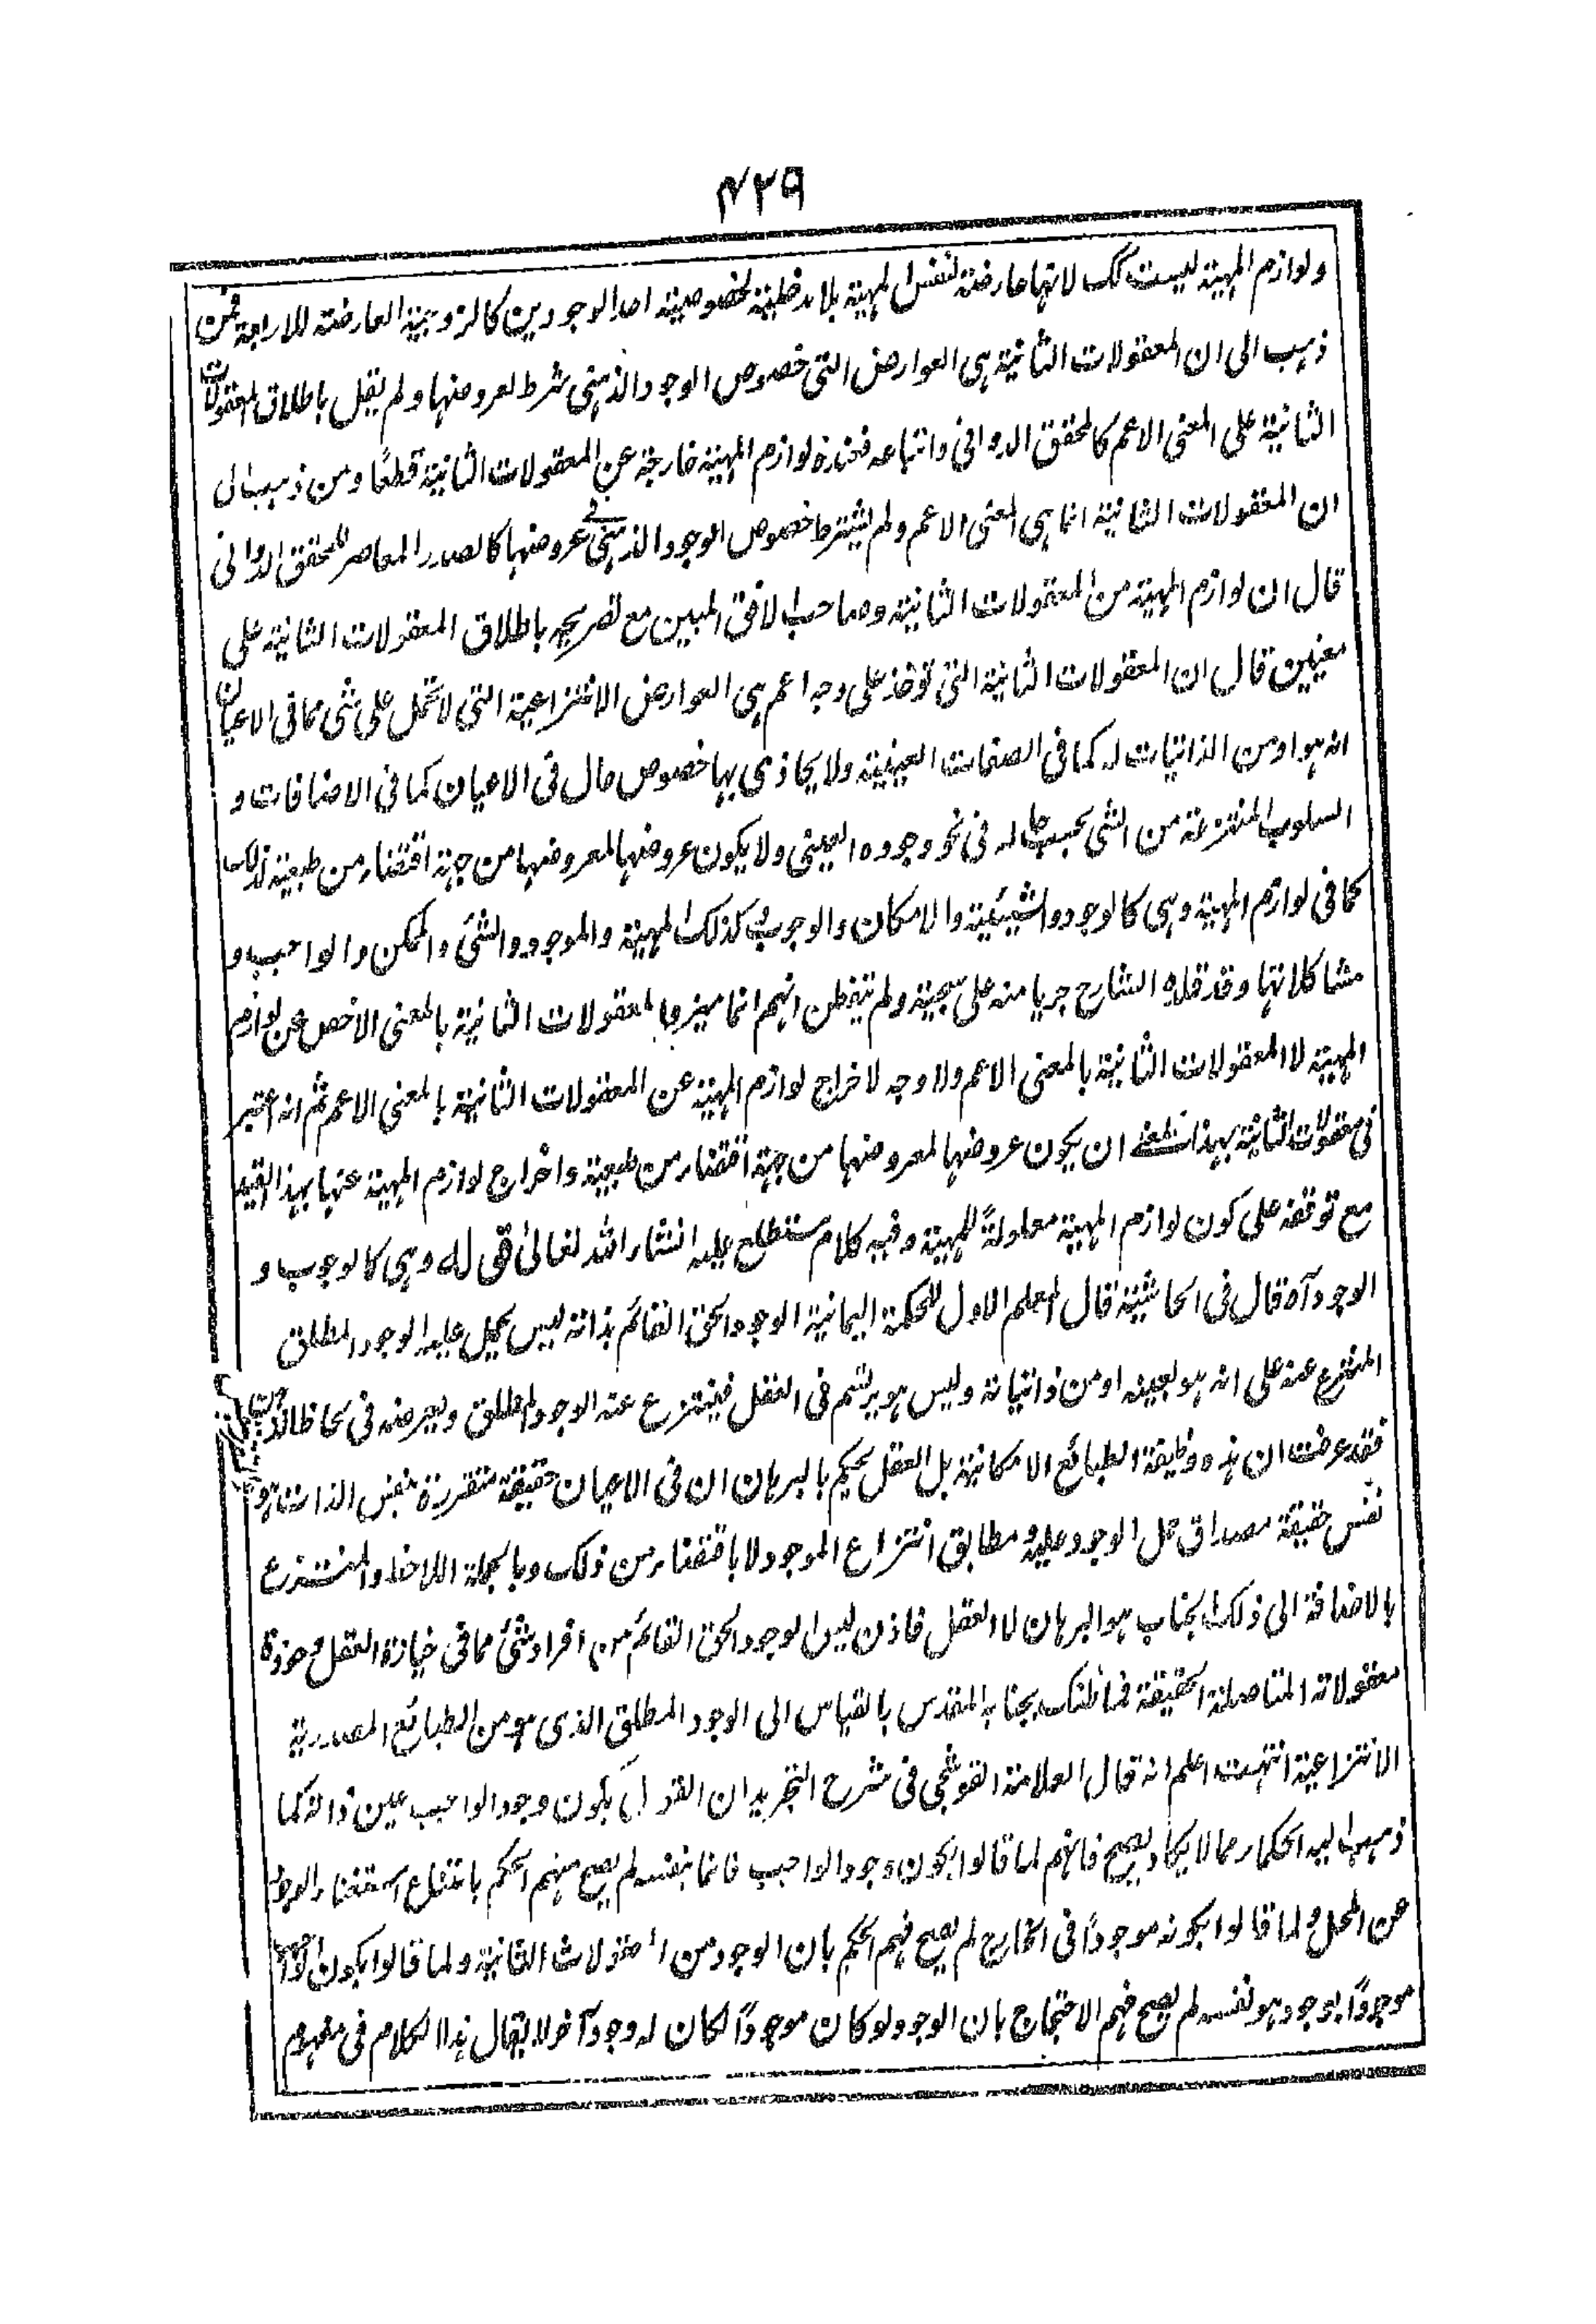 ۴۲۹
ولوازم المهية ليست كك لانها عارضة لنفس المهية بلا مدخلية لخصوصية احد الوجودين كالزوجية العارضة للاربعة فمن
ذهب الى ان المعقولات الثانية هى العوارض التى خصوص الوجود الذهنى شرط لعروضها ولم يقل باطلاق المعقولات
الثانية على المعنى الاعم كالمحقق الدوانى واتباعه فعنده لوازم المهية خارجة عن المعقولات الثانية قطعًا ومن ذهب الى
ان المعقولات الثانية انما هى المعنى الاعم ولم يشترط خصوص الوجود الذهنى فى عروضها كالصدر المعاصر للمحقق الدوانى
قال ان لوازم المهية من المعقولات الثانية وصاحب الافق المبين مع تصريحه باطلاق المعقولات الثانية على
معنيين قال ان المعقولات الثانية التى توخذ على وجه اعم هى العوارض الانتزاعية التى لا تحمل على شئ مما فى الاعيان
انه هو او من الذاتيات له كما فى الصفات العينية ولا يحاذى بها خصوص حال فى الاعيان كما فى الاضافات و
السلوب المنتزعة من الشئ بحسب حال له فى نحو وجوده العينى ولا يكون عروضها لمعروضها من جهة اقتضاء من طبعية ذلك
كما فى لوازم المهية وهى كالوجود والشيئية والامكان والوجوب وكذلك المهية والموجود والشئ والممكن والواجب و
مشاكلاتها وقد قلده الشارح جريا منه على سجيته ولم يتفطن انهم انما ميزوا المعقولات الثانية بالمعنى الاخص عن لوازم
المهية لا المعقولات الثانية بالمعنى الاعم ولا وجه لاخراج لوازم المهية عن المعقولات الثانية بالمعنى الاعم ثم انه اعتبر
فى معقولات الثانية بهذا المعنى ان يكون عروضها لمعروضها من جهة اقتضاء من طبعية واخراج لوازم المهية عنها بهذا القيد
مع توقفه على كون لوازم المهية معلولةً للمهية وفيه كلام ستطلع عليه انشاء الله تعالىٰ قوله وهى كالوجوب و
الوجود آه قال فى الحاشية قال المعلم الاول للحكمة اليمانية الوجود الحق القائم بذاته ليس يحمل عليه الوجود المطلق
المنتزع عنه على انه هو بعينه او من ذاتياته وليس هو يرتسم فى العقل فينتزع عنه الوجود المطلق ويعرضه فى لحاظ الذهن
فقد عرفت ان هذه وظيفة الطبائع الامكانية بل العقل يحكم بالبرهان ان فى الاعيان حقيقة متقررة بنفس الذات
نفس حقيقة مصداق حمل الوجود عليه ومطابق انتزاع الموجود لا باقتضاء من ذلك وبالجملة اللاحظ والمنتزع
بالاضافة الى ذلك الجناب هو البرهان لا العقل فاذن ليس الوجود الحق القائم من افراد شئ مما فى خيازة العقل وحوزة
معقولاته المتاصلة الحقيقة فما ظنك بجنابه المقدس بالقياس الى الوجود المطلق الذى هو من الطبائع المصدرية
الانتزاعية انتهت اعلم انه قال العلامة القوشجى فى شرح التجريد ان القول بكون وجود الواجب عين ذاته كما
ذهب اليه الحكماء مما لا يكاد يصح فانهم لما قالوا بكون وجود الواجب قائما بنفسه لم يصح منهم الحكم بامتناع استغناء العرض
عن المحل ولما قالوا بكونه موجودًا فى الخارج لم يصح منهم الحكم بان الوجود من المعقولات الثانية ولما قالوا بكون الوجود
موجودًا بوجود هو نفسه لم يصح منهم الاحتجاج بان الوجود لو كان موجودًا لكان له وجود آخر لا يقال هذا الكلام فى مفهوم